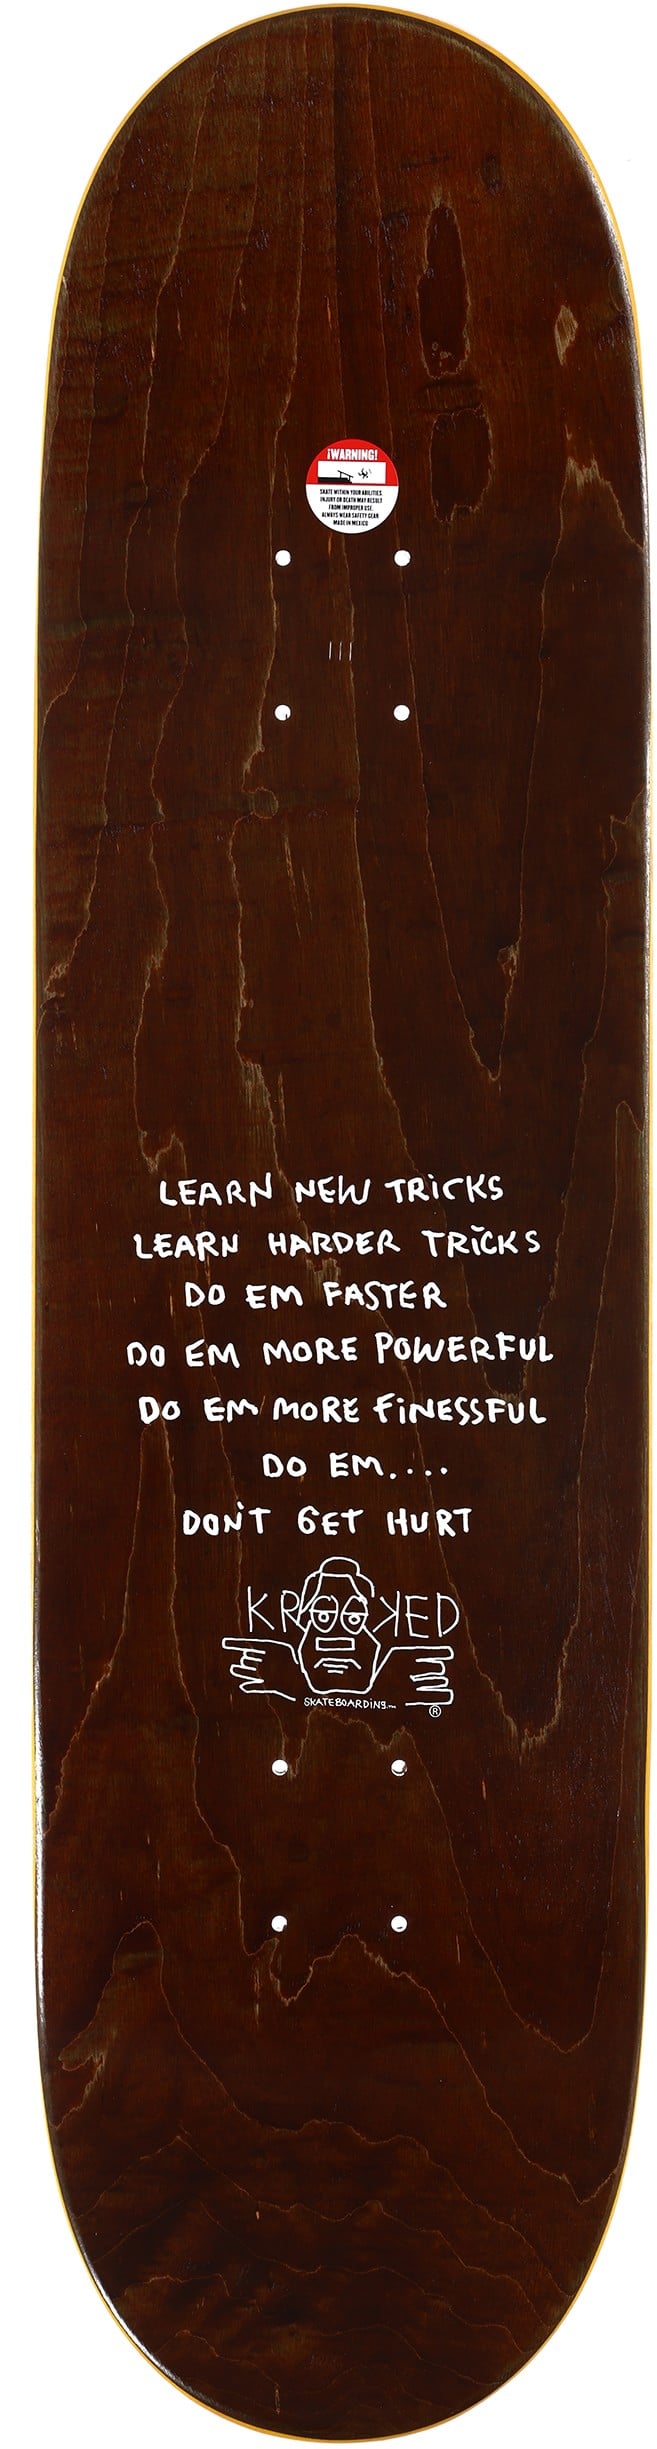 ¡WARNING!
SKATE WITHIN YOUR ABILITIES
INJURY OR DEATH MAY RESULT
FROM IMPROPER USE.
ALWAYS WEAR SAFETY GEAR
MADE IN MEXICO
LEARN NEW TRiCKS
LEARN HARDER TRiCKS
DO EM FASTER
DO EM MORE POWERFUL
DO EM MORE FiNESSFUL
DO EM....
DON'T GET HURT
KROOKED
SKATEBOARDiNg.™
®